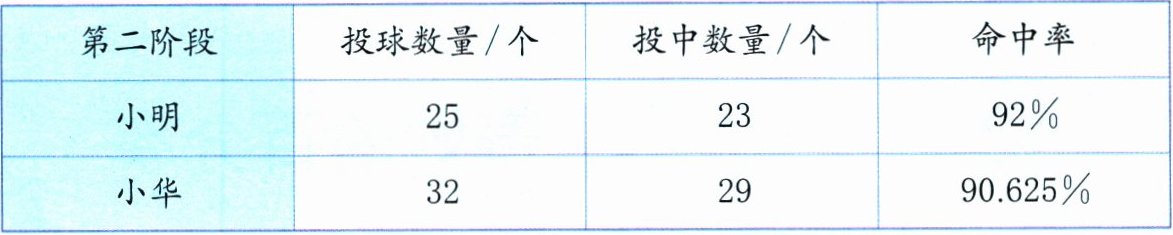 第二阶段 投球数量/个 投中数量/个 命中率
小明 25 23 92%
小华 32 29 90.625%